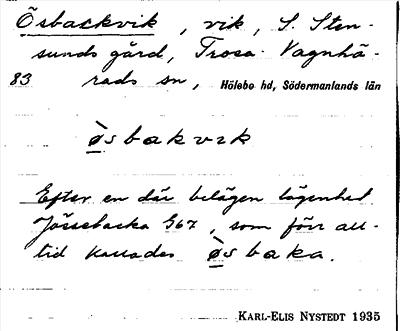 Ösbackvik, vik, S. Sten-
sunds gård, Trosa-Vagnhä-
83 rads sn, Hölebo hd, Södermanlands län
ø̀sbakvik
Efter en där belägen lägenhet
Jössebacka 567, som förr all-
tid kallades ø̀sbaka.
KARL-ELIS NYSTEDT 1935